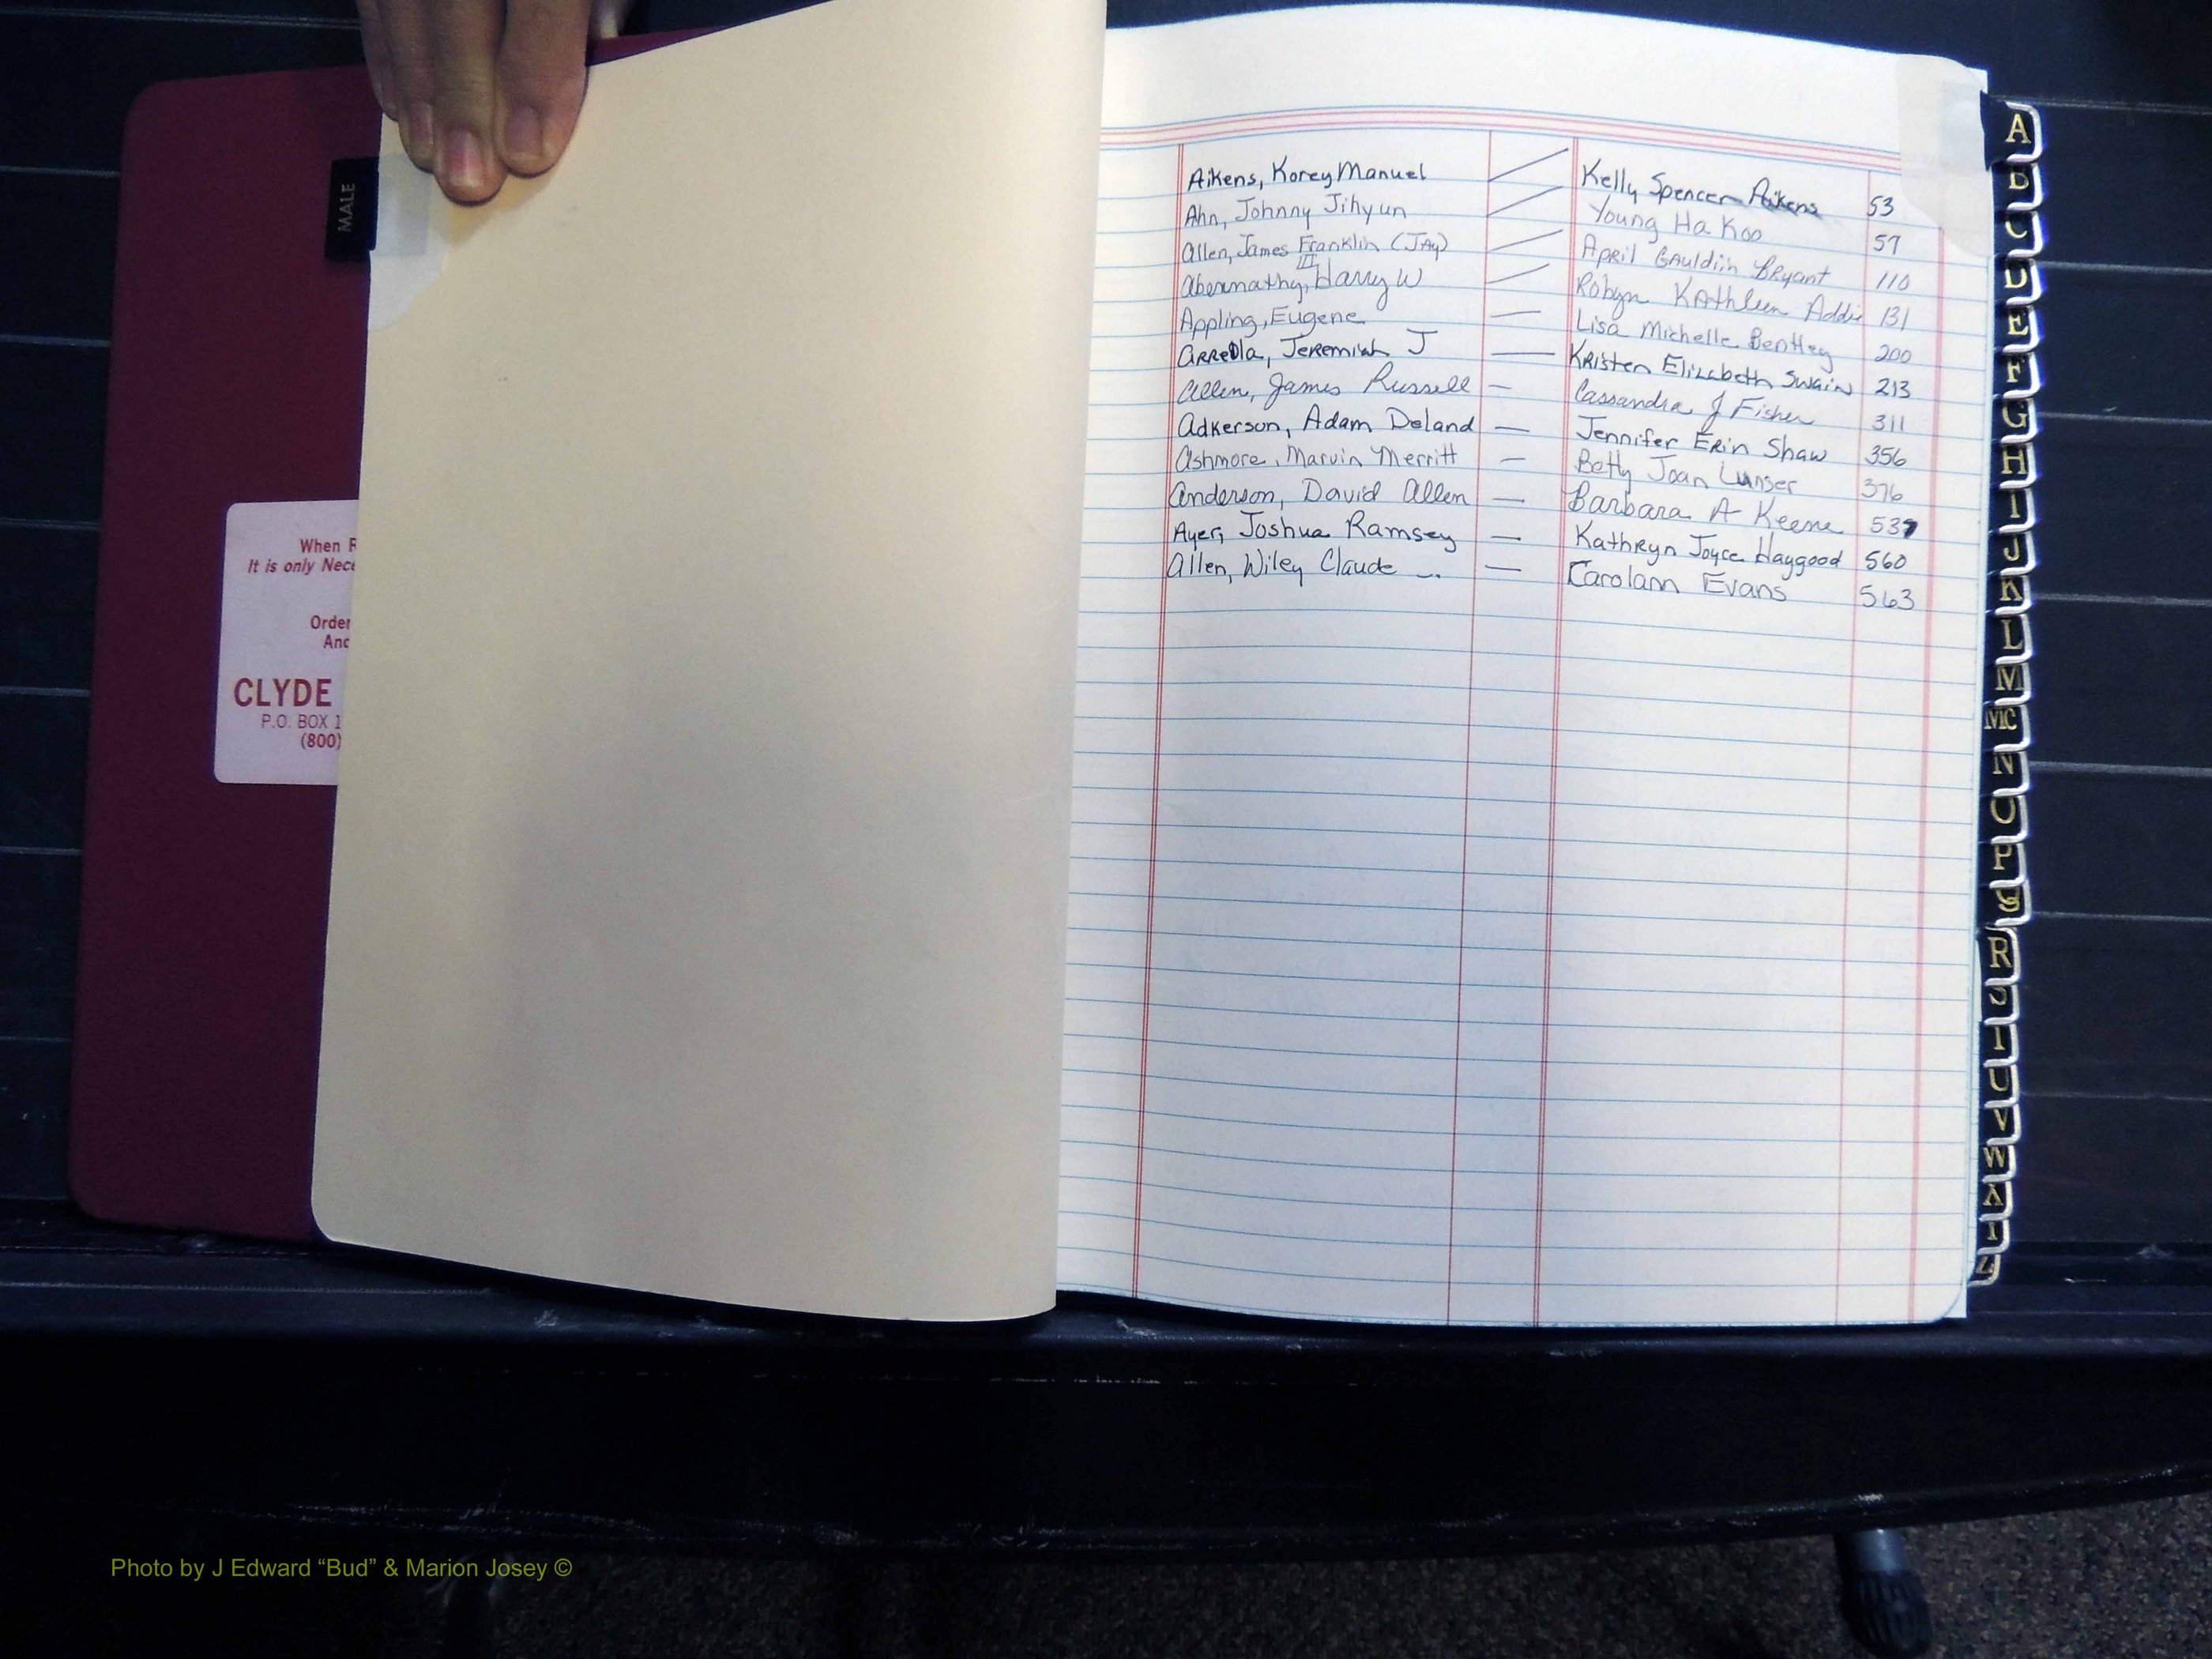 MALE
When R
It is only Nece
Order
And
CLYDE
P.O. BOX 1
(800)
Aikens, Korey Manuel — Kelly Spencer Aikens 53
Ahn, Johnny Jihyun — Young Ha Koo 57
Allen, James Franklin (JAy) — April Gauldin Bryant 110
Abernathy, Harry W III — Robyn KAthleen Addie 131
Appling, Eugene — Lisa Michelle Bentley 200
Arreola, Jeremiah J — Kristen Elizabeth Swain 213
Allen, James Russell — Cassandra J Fisher 311
Adkerson, Adam Deland — Jennifer Erin Shaw 356
Ashmore, Marvin Merritt — Betty Joan 376
Anderson, David Allen — Barbara A Keene 537
Ayer, Joshua Ramsey — Kathryn Joyce Haygood 560
Allen, Wiley Claude — Carolann Evans 563
A
B
C
D
E
F
G
H
I
J
K
L
M
MC
N
O
P
Q
R
S
T
U
V
W
X
Y
Z
Photo by J Edward “Bud” & Marion Josey ©